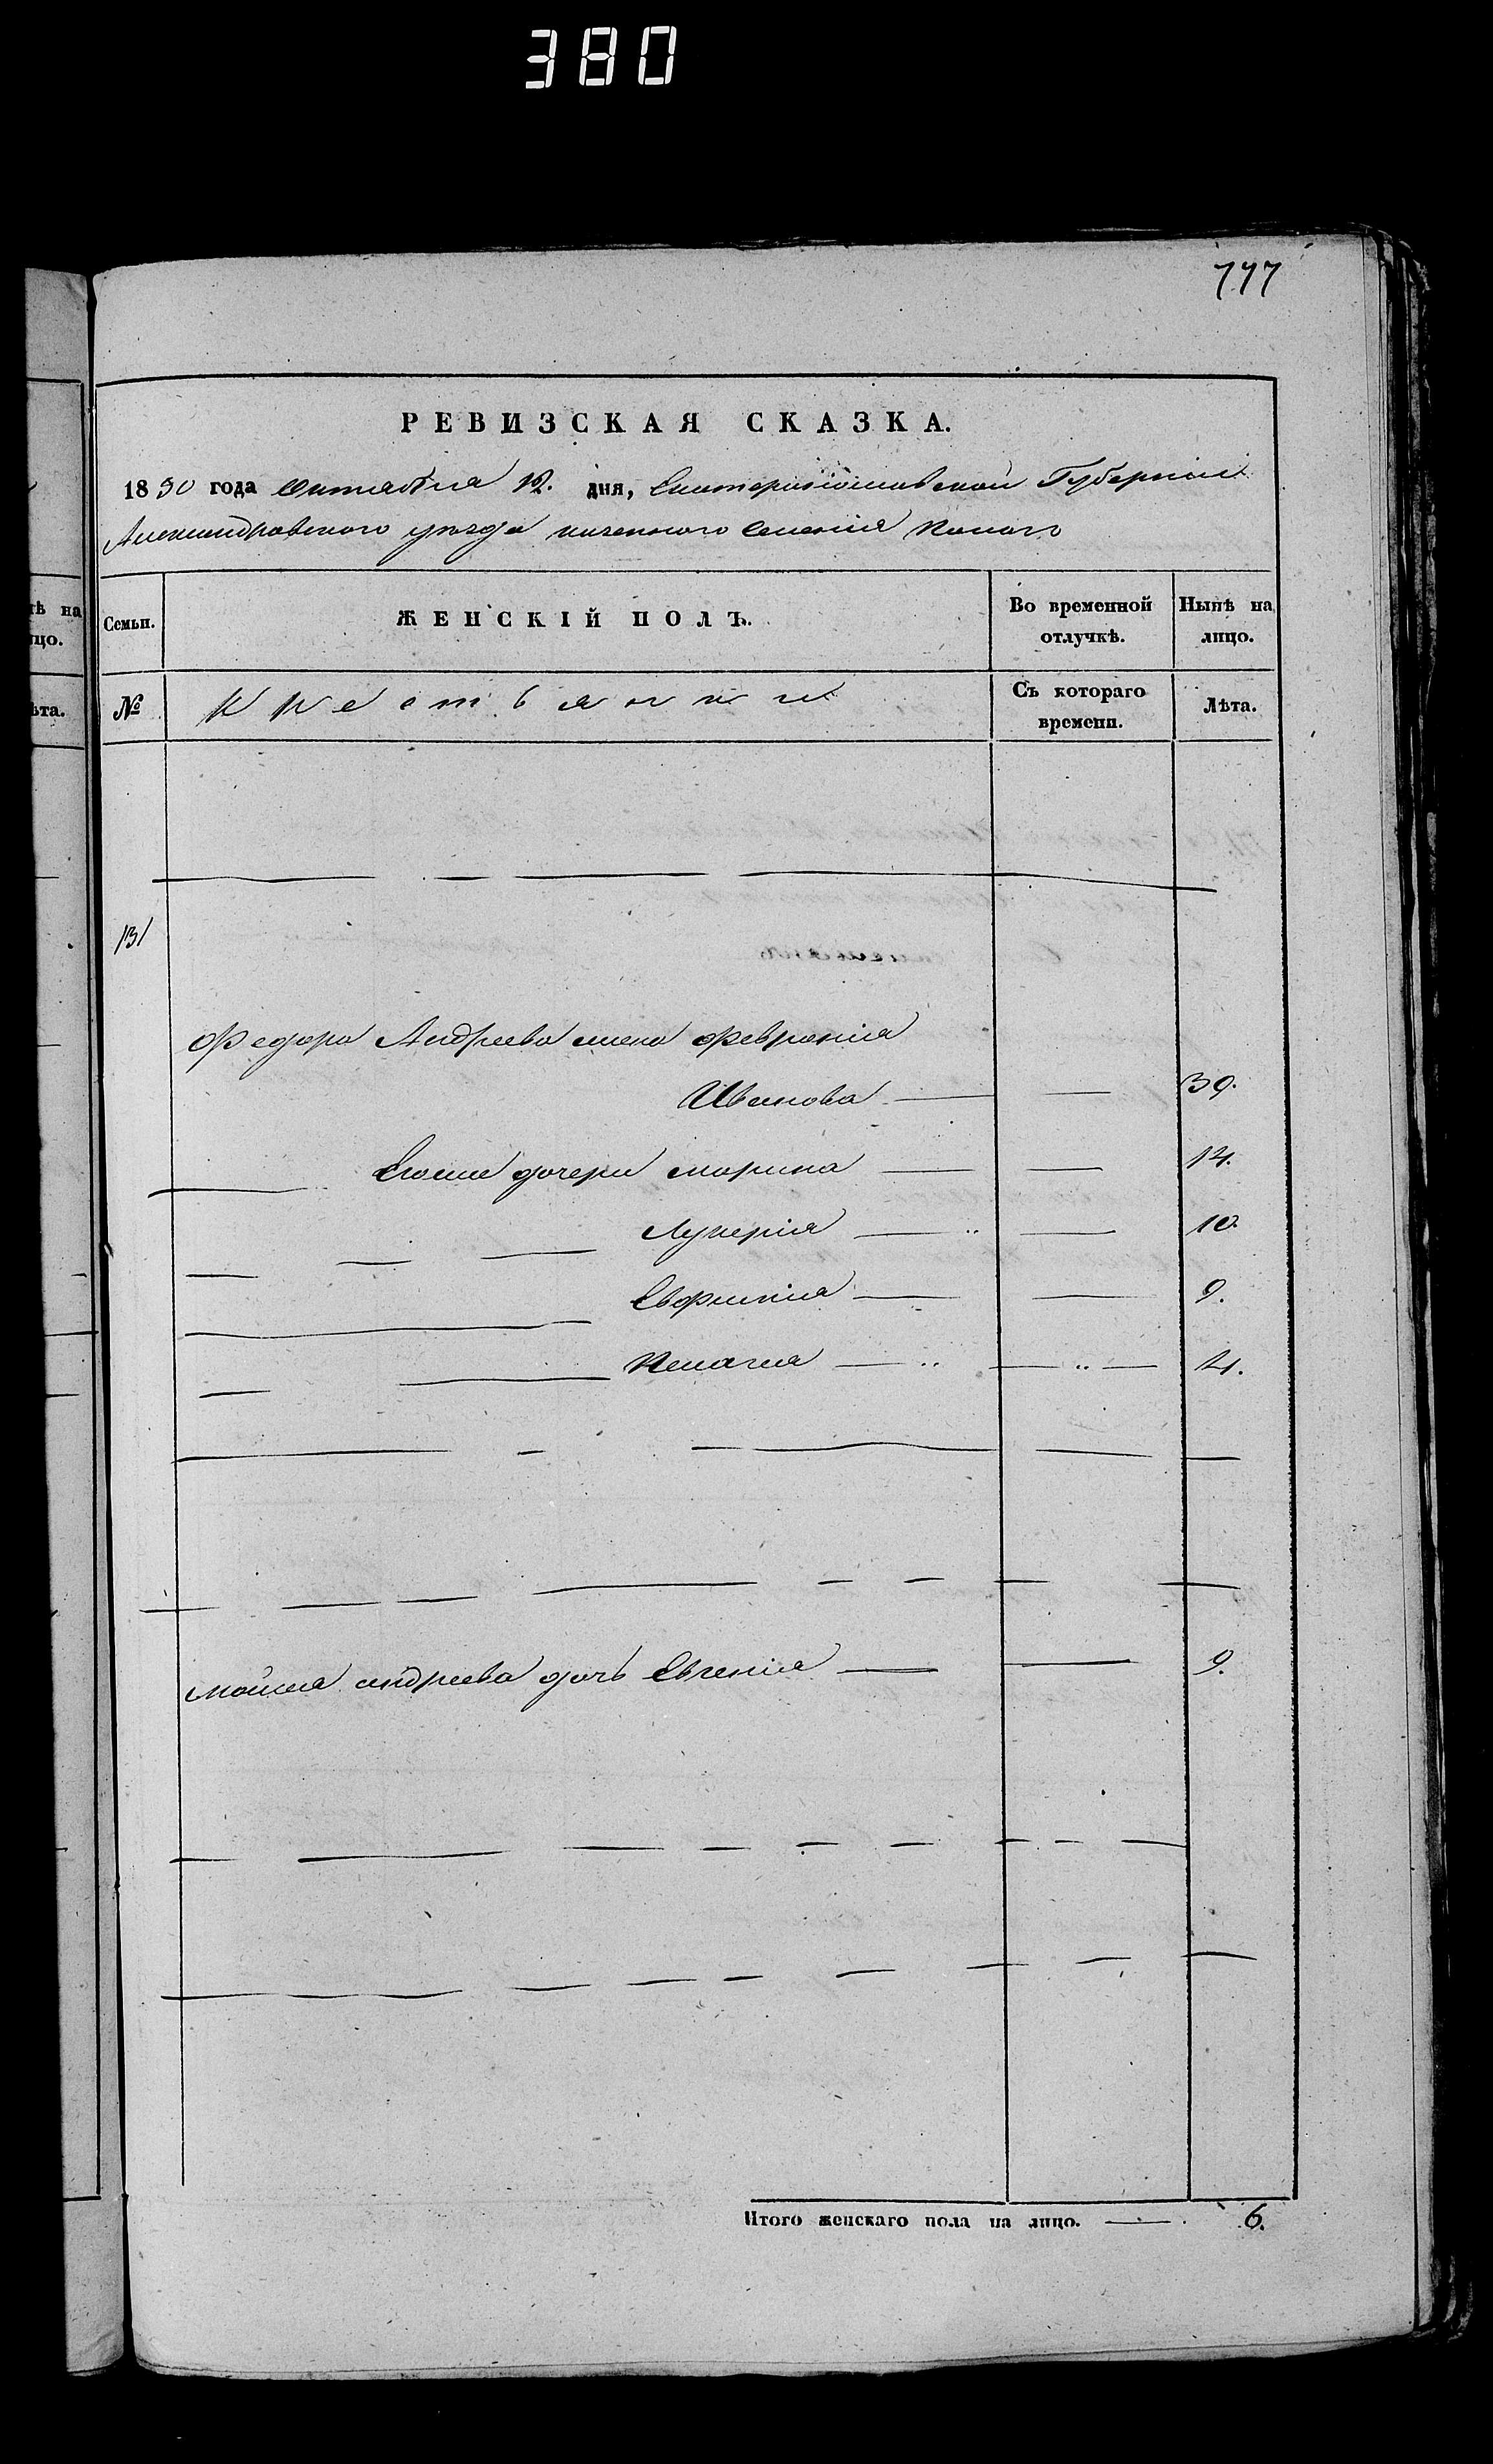 380
777
РЕВИЗСКАЯ СКАЗКА.
1850 года Октября 12. дня, Екатеринославской Губернии
Александровского уезда казенного Селения
тѣ на
ицо.
Семьи.
ЖЕНСКІЙ ПОЛЪ.
Во временной
отлучкѣ.
Нынѣ на
лицо.
ѣта.
№
Крестьянки
Съ котораго
времени.
Лѣта.
131
Федора Андреева жена Феврония
Иванова — — 39.
Егоже дочери марина — — 14.
Лукерия — — 10.
Евфимия — — 9.
Пелагия — — 4.
моисея андреева дочь Евгения — — 9.
Итого женскаго пола на лицо. — 6.